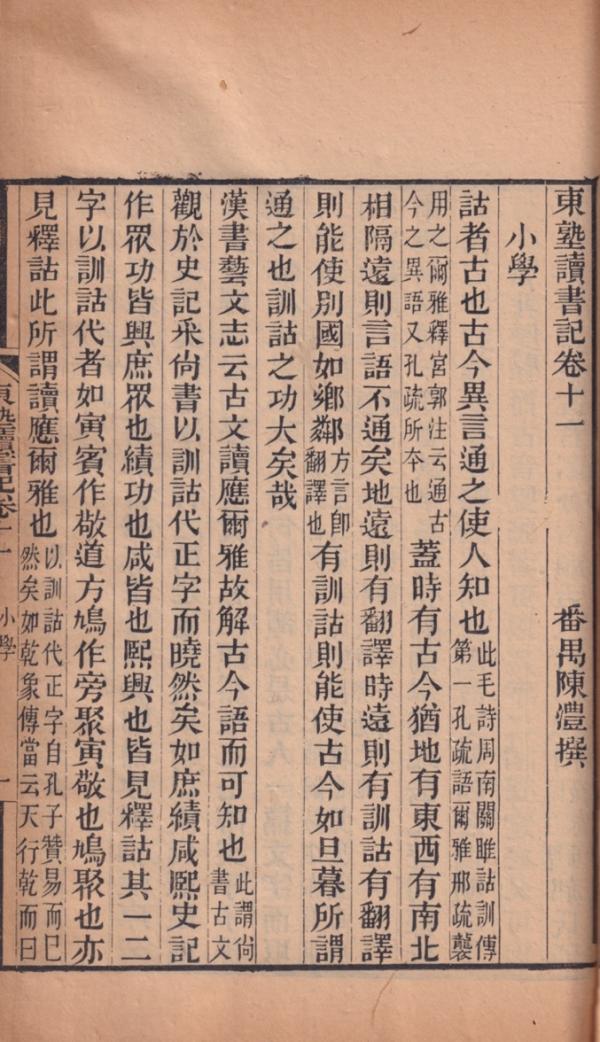 東塾讀書記卷十一　番禺陳澧撰
小學
詁者古也古今異言通之使人知也此毛詩周南關雎詁訓傳第一孔疏語爾雅邢疏襲
用之爾雅釋宮郭注云通古今之異語又孔疏所夲也蓋時有古今猶地有東西有南北
相隔遠則言語不通矣地遠則有翻譯時遠則有訓詁有翻譯
則能使別國如鄉鄰方言卽翻譯也有訓詁則能使古今如旦暮所謂
通之也訓詁之功大矣哉
漢書藝文志云古文讀應爾雅故解古今語而可知也此謂尙書古文
觀於史記采尙書以訓詁代正字而曉然矣如庶績咸熙史記
作眾功皆興庶眾也績功也咸皆也熙興也皆見釋詁其一二
字以訓詁代者如寅賓作敬道方鳩作旁聚寅敬也鳩聚也亦
見釋詁此所謂讀應爾雅也以訓詁代正字自孔子贊易而已然矣如乾象傳當云天行乾而曰
東塾讀書記卷十一　小學　一